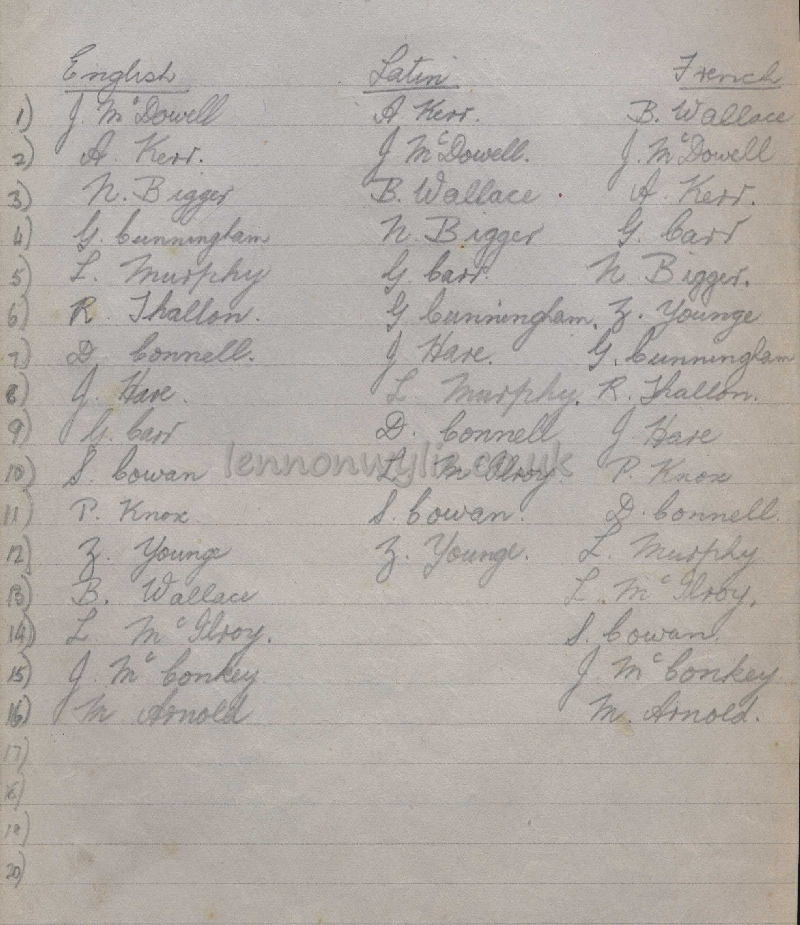 English Latin French
1) J. McDowell A Kerr. B. Wallace
2) A. Kerr. J McDowell. J. McDowell
3) N. Bigger B. Wallace A. Kerr.
4) G. Cunningham N. Bigger G. Carr
5) L. Murphy G. Carr. N Bigger.
6) R. Thallon. G Cunningham. Z. Younge
7) D Connell. J Hare. G. Cunningham
8) J. Hare. L Murphy. R. Thallon.
9) G. Carr D. Connell J Hare
lennonwylie.co.uk
10) S. Cowan L. McIlroy. P. Knox
11) P. Knox S. Cowan. D. Connell.
12) Z. Younge Z. Younge. L. Murphy
13) B. Wallace L. McIlroy.
14) L McIlroy. S. Cowan.
15) J. McConkey J McConkey
16) M Arnold M. Arnold.
17)
18)
19)
20)